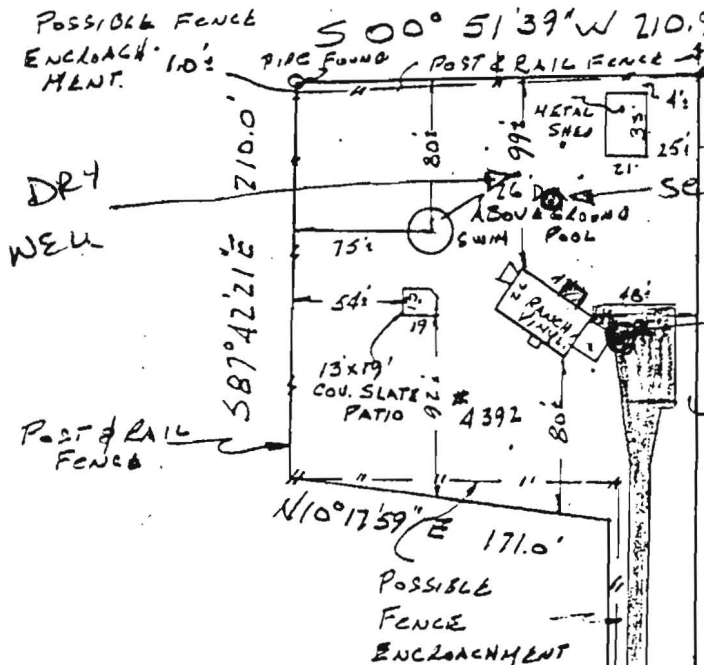 POSSIBLE FENCE
ENCROACH-
MENT. 1.0'±
S 00° 51'39" W 210.9
PIPE FOUND
POST & RAIL FENCE
METAL
SHED
4'±
35'
25'±
21'
99'±
80'±
210.0'
S87°42'21"E
DRY
WELL
26'
ABOVE GROUND
SWIM POOL
75'±
54'±
13'
19'
13'x19'
COV. SLATE
PATIO
92'±
# 4392
RANCH
VINYL
48'±
80'±
POST & RAIL
FENCE
N10°17'59" E
171.0'
POSSIBLE
FENCE
ENCROACHMENT